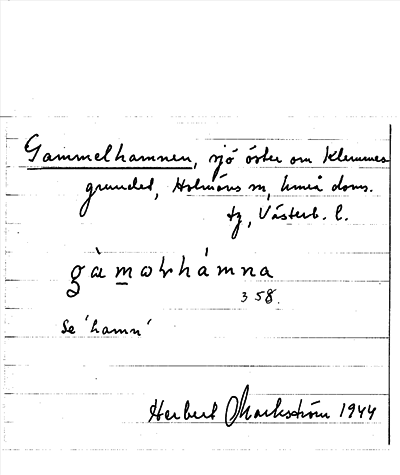 Gammelhamnen, sjö öster om Klemmes
grundet, Holmöns sn, Umeå doms.
tg, Västerb. l.
gàmaⱳhámna
358.
Se 'hamn'
Herbert Markström 1944